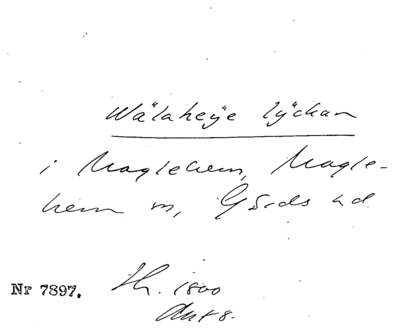 Wälaheÿe lÿckan
i Maglehem, Magle-
hem sn, Gärds hd
Nr 7897. Th. 1800
Akt 8.